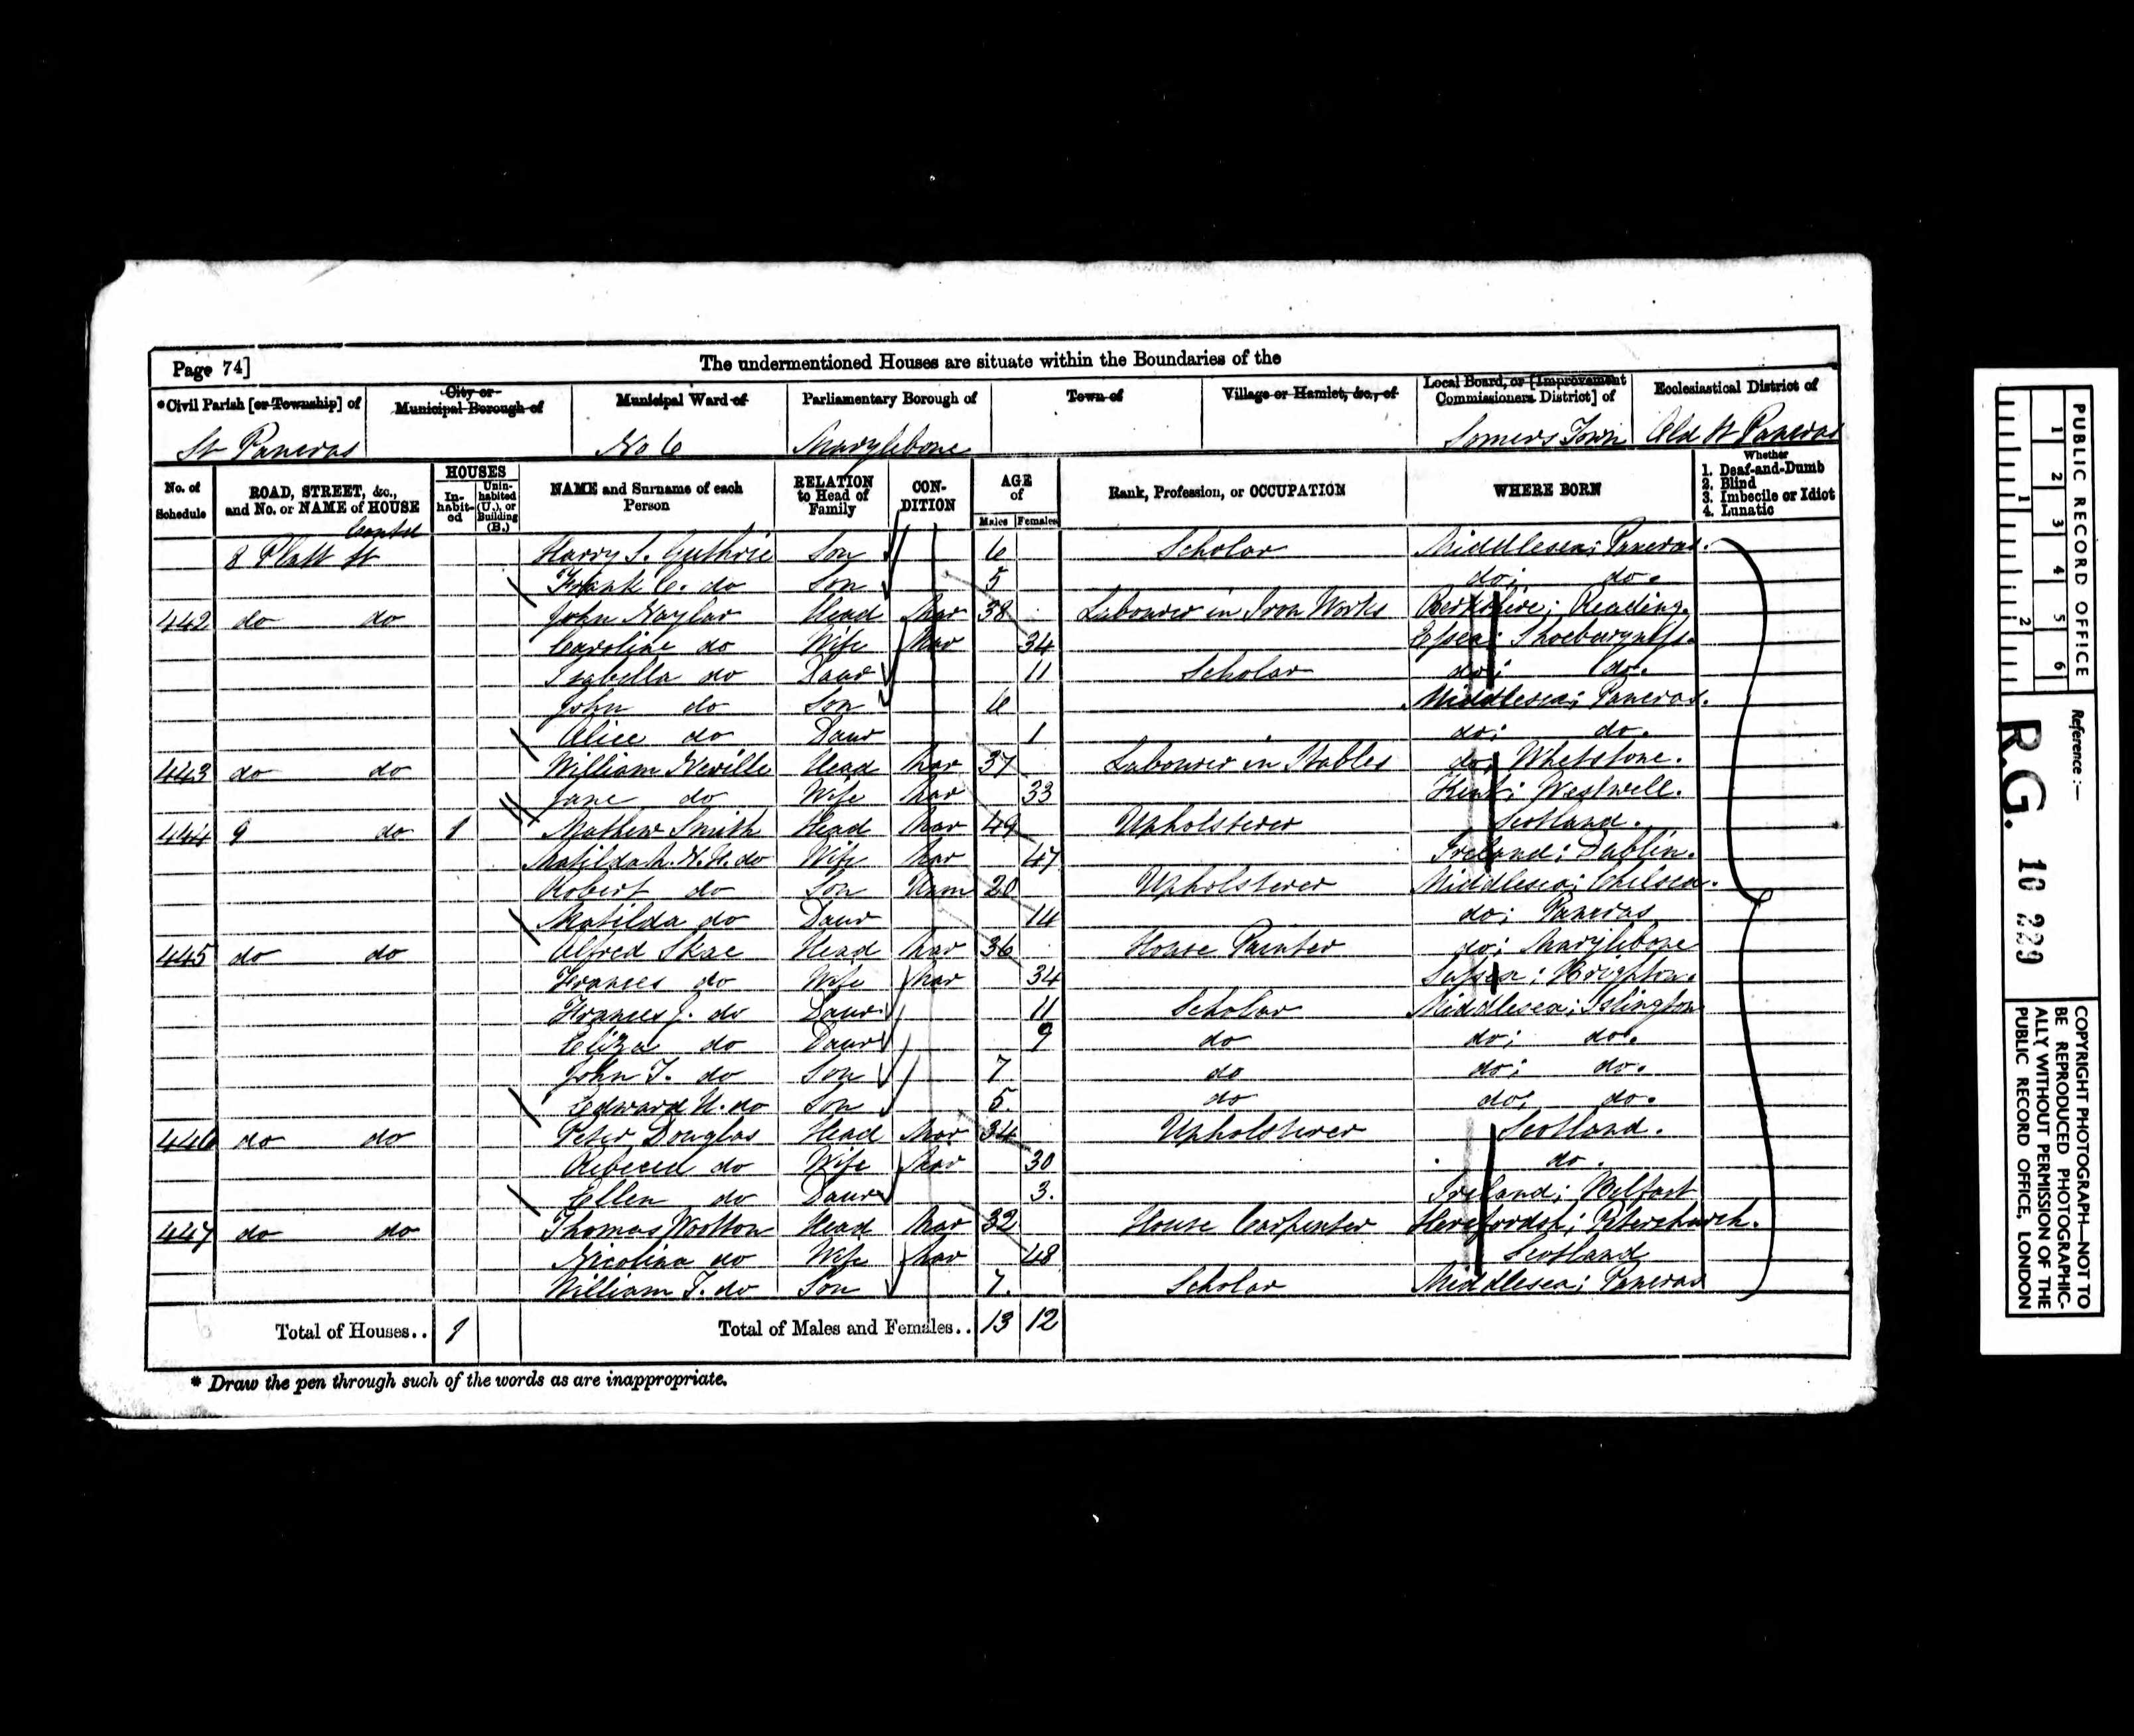 Page 74]
The undermentioned Houses are situate within the Boundaries of the
*Civil Parish [or Township] of
City or Municipal Borough of
Municipal Ward of
Parliamentary Borough of
Town of
Village or Hamlet, &c., of
Local Board, or [Improvement Commissioners District] of
Ecclesiastical District of
St Pancras No 6 Marylebone Somers Town Old St Pancras
No. of Schedule
ROAD, STREET, &c., and No. or NAME of HOUSE
HOUSES
In-habit-ed
Unin-habited (U.), or Building (B.)
NAME and Surname of each Person
RELATION to Head of Family
CON-DITION
AGE of
Males Females
Rank, Profession, or OCCUPATION
WHERE BORN
Whether
1. Deaf-and-Dumb
2. Blind
3. Imbecile or Idiot
4. Lunatic
Contd
8 Platt St Harry S. Guthrie Son 6 Scholar Middlesex; Pancras.
Frank C. do Son 5 do; do.
442 do do John Naylor Head Mar 38 Labourer in Iron Works Berkshire; Reading.
Caroline do Wife Mar 34 Essex; Shoeburyness.
Isabella do Daur 11 Scholar do; do.
John do Son 6 Middlesex; Pancras.
Alice do Daur 1 do; do.
443 do do William Neville Head Mar 37 Labourer in Stables do; Whetstone.
Jane do Wife Mar 33 Kent; Westwell.
444 9 do 1 Mathew Smith Head Mar 49 Upholsterer Scotland.
Matilda h. H. do Wife Mar 47 Ireland; Dublin.
Robert do Son Unm 20 Upholsterer Middlesex; Chelsea.
Matilda do Daur 14 do; Pancras
445 do do Alfred Skae Head Mar 36 House Painter do; Marylebone
Frances do Wife Mar 34 Sussex; Brighton.
Frances J. do Daur 11 Scholar Middlesex; Islington
Eliza do Daur 9 do do; do.
John T. do Son 7 do do; do.
Edward H. do Son 5. do do; do.
446 do do Peter Douglas Head Mar 34 Upholsterer Scotland.
Rebecca do Wife Mar 30 do.
Ellen do Daur 3. Ireland; Belfast
447 do do Thomas Wootton Head Mar 32 House Carpenter Herefordsh; Peterchurch.
Nicolina do Wife Mar 48 Scotland
William T. do Son 7. Scholar Middlesex; Pancras
Total of Houses.. 1 Total of Males and Females.. 13 12
* Draw the pen through such of the words as are inappropriate.
PUBLIC RECORD OFFICE
1 2 3 4 5 6
1 2
Reference:—
R.G. 10 229
COPYRIGHT PHOTOGRAPH—NOT TO
BE REPRODUCED PHOTOGRAPHIC-
ALLY WITHOUT PERMISSION OF THE
PUBLIC RECORD OFFICE, LONDON